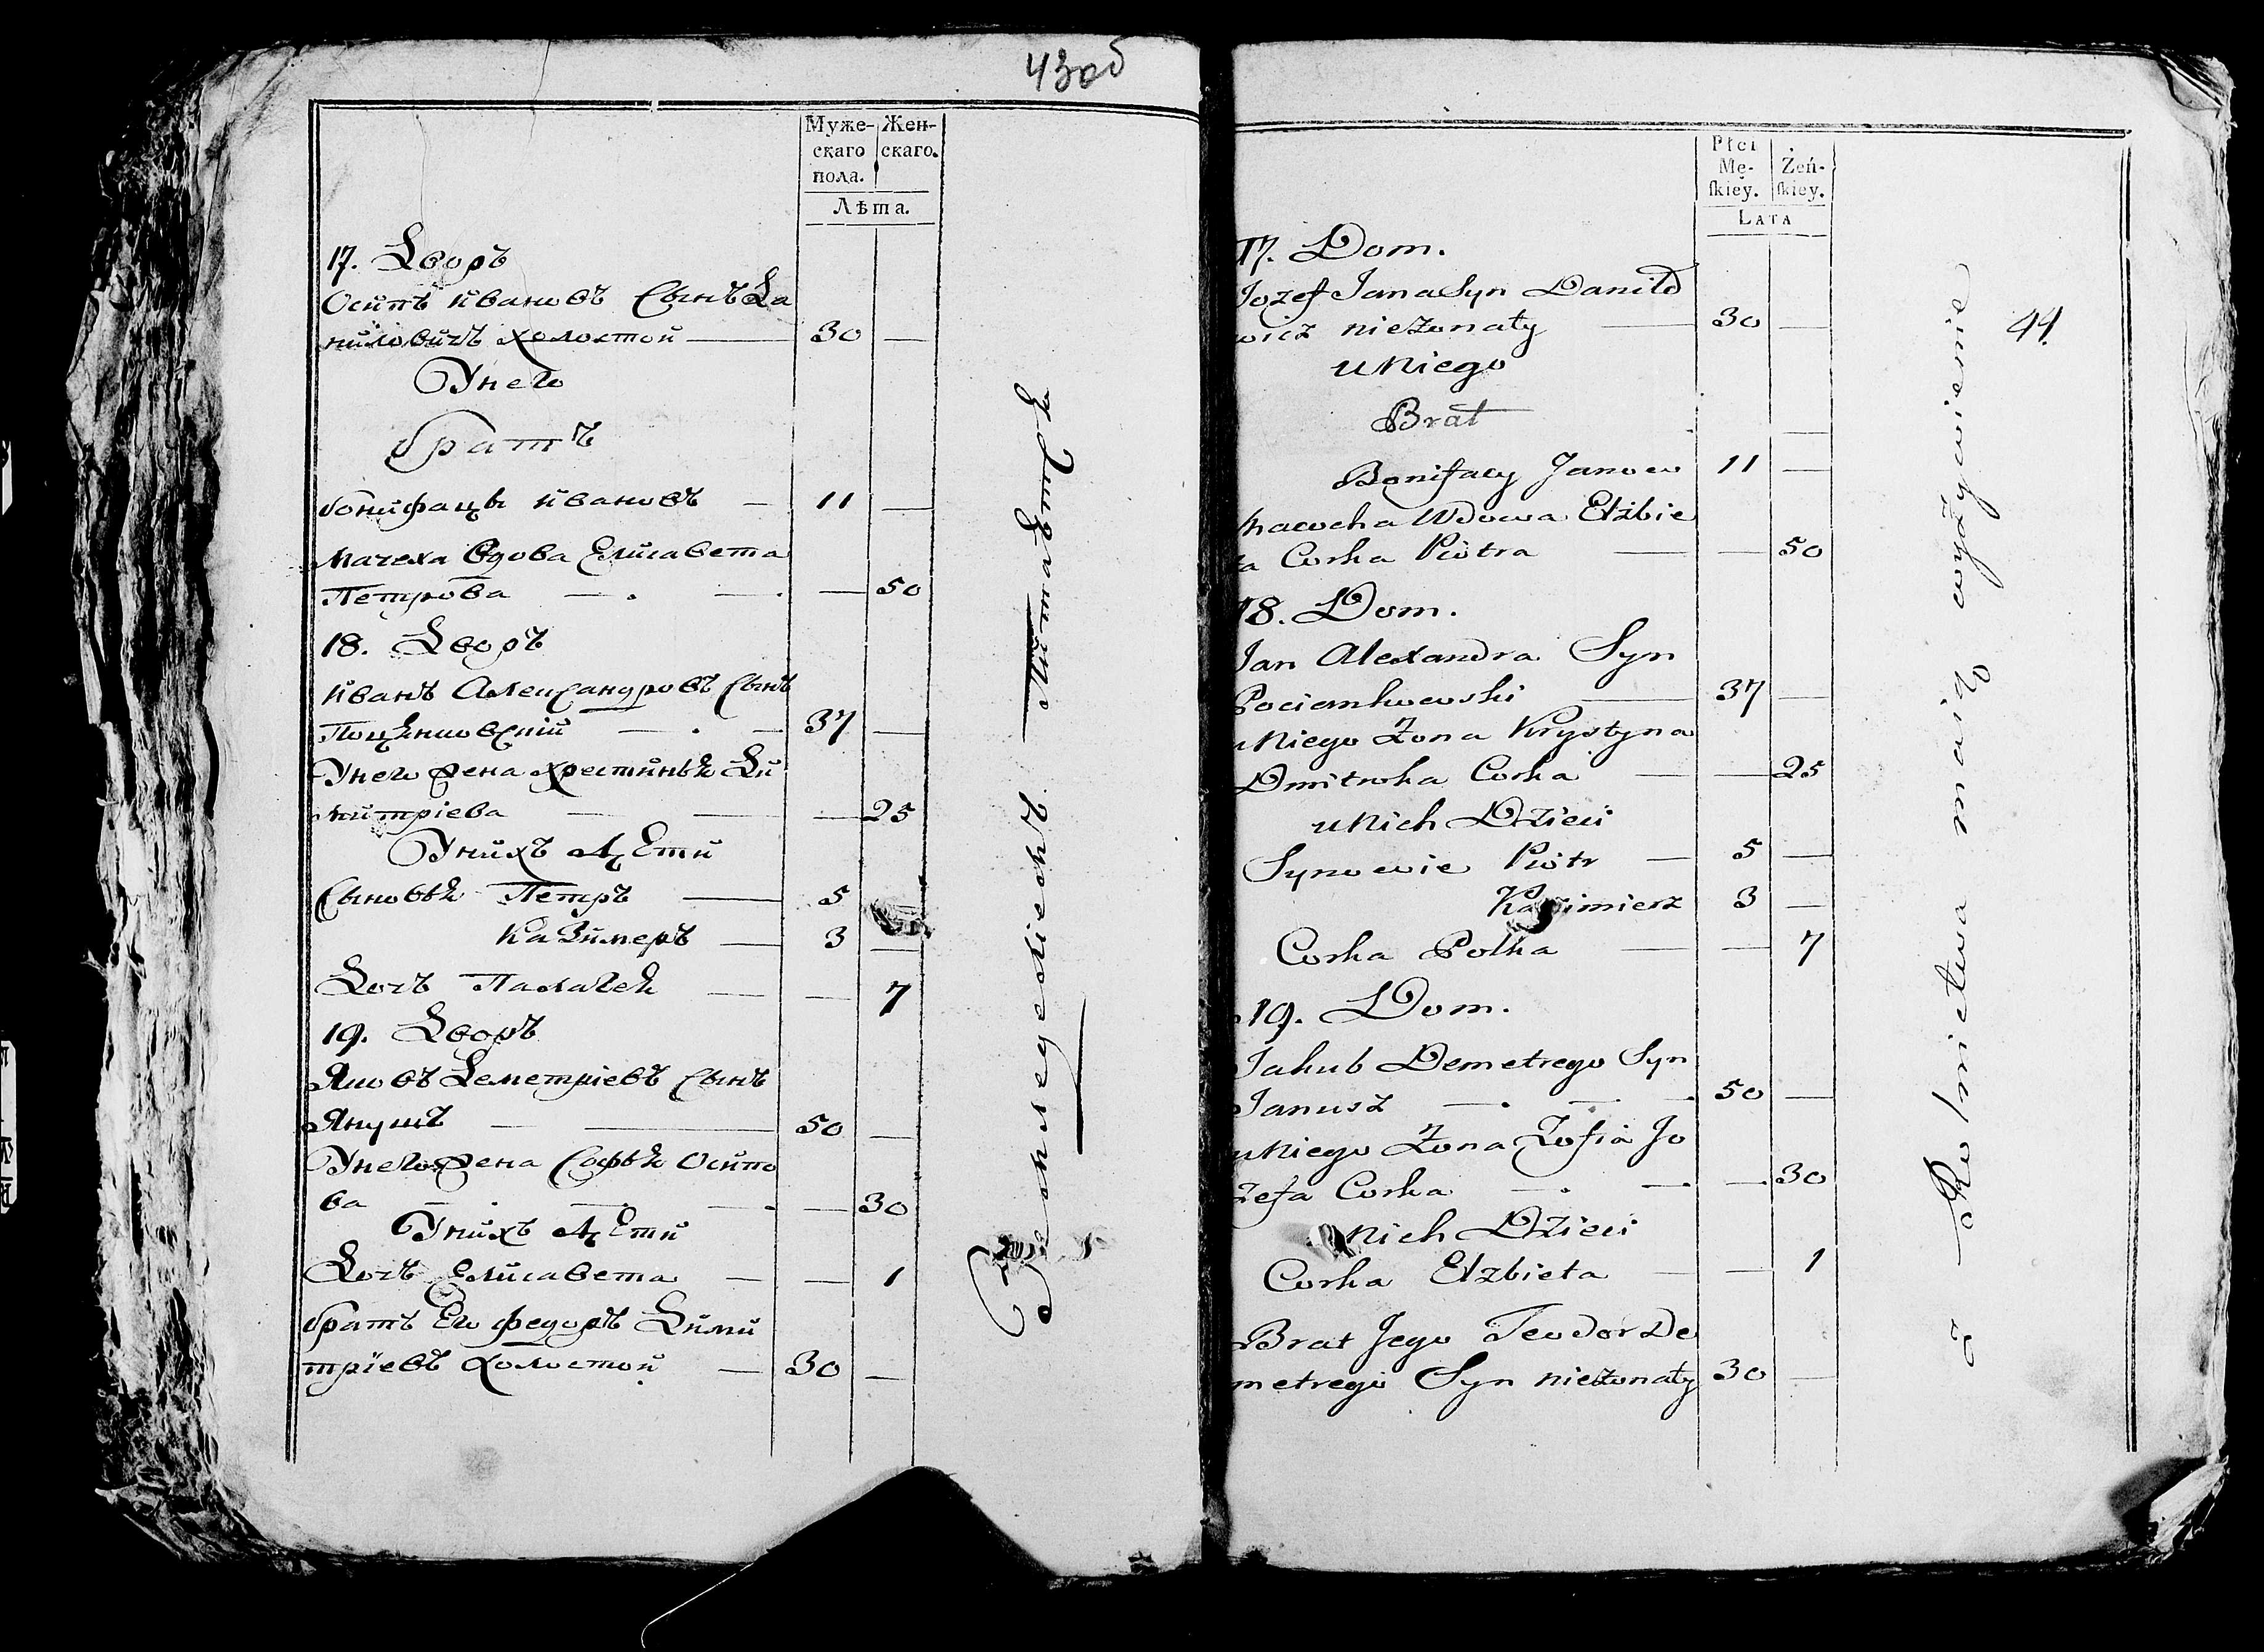 43об
Муже- Жен-
скаго скаго.
пола.
Лѣта.
17. Дворъ
Осипъ Ивановъ Сынъ Да
ниловичъ холостой — 30 —
У него
братъ
бонифацы Ивановъ — 11 —
мачеха вдова Елисавета
Петрова — — 50
18. Дворъ
Иванъ Александровъ Сынъ
37 —
У него жена Хрестинья Ди
митріева — — 25
У нихъ дѣти
Сыновья Петръ — 5
Казимеръ — 3 —
Дочь — — 7
19. Дворъ
Яковъ Деметріевъ Сынъ
Янушъ — 50 —
У него жена Софья Осипо
ва — — 30
У нихъ дѣти
Дочь Елисавета — — 1
братъ Его федоръ Дими
тріевъ холостой — 30 —
Землед
Płci
Mę- Żeń-
ſkiey. ſkiey.
LATA
17. Dom.
Jozef Jana Syn Daniło
wicz nieżonaty — 30 —
u Niego
Brat
—
Bonifacy Janow 11 —
macocha Wdowa Elżbie
ta Corka Piotra — — 50
18. Dom.
Jan Alexandra Syn
Pocienkowski — 37 —
u Niego Żona Krystyna
Dmitroka Corka — — 25
u Nich Dzieci
Synowie Piotr — 5 —
Kazimierz 3 —
Corka Polka — — 7
19. Dom.
Jakub Demetrego Syn
Janusz — 50 —
u Niego Żona Zofia Jo
zefa Corka — — 30
u Nich Dzieci
Corka Elzbieta — — 1
Brat Jego Teodor De
metrego Syn nieżonaty 30 —
z Rolnictwa maią wyżywienie
44.